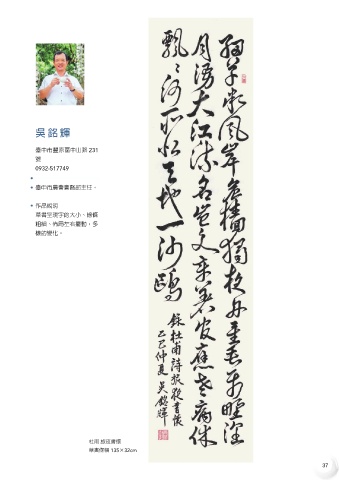 吳銘輝
臺中市豐原區中山路 231
號
0932-517749
臺中市農會書教班主任。
作品說明
草書呈現字的大小、線條
粗細、佈局左右擺動,多
樣的變化。
細草微風岸危檣獨夜舟星垂平野闊
月湧大江流名豈文章著官應老病休
飄飄何所似天地一沙鷗
錄杜甫詩旅夜書懷
乙巳仲夏 吳銘輝
杜甫 旅夜書懷
草書條幅 135×32cm
37